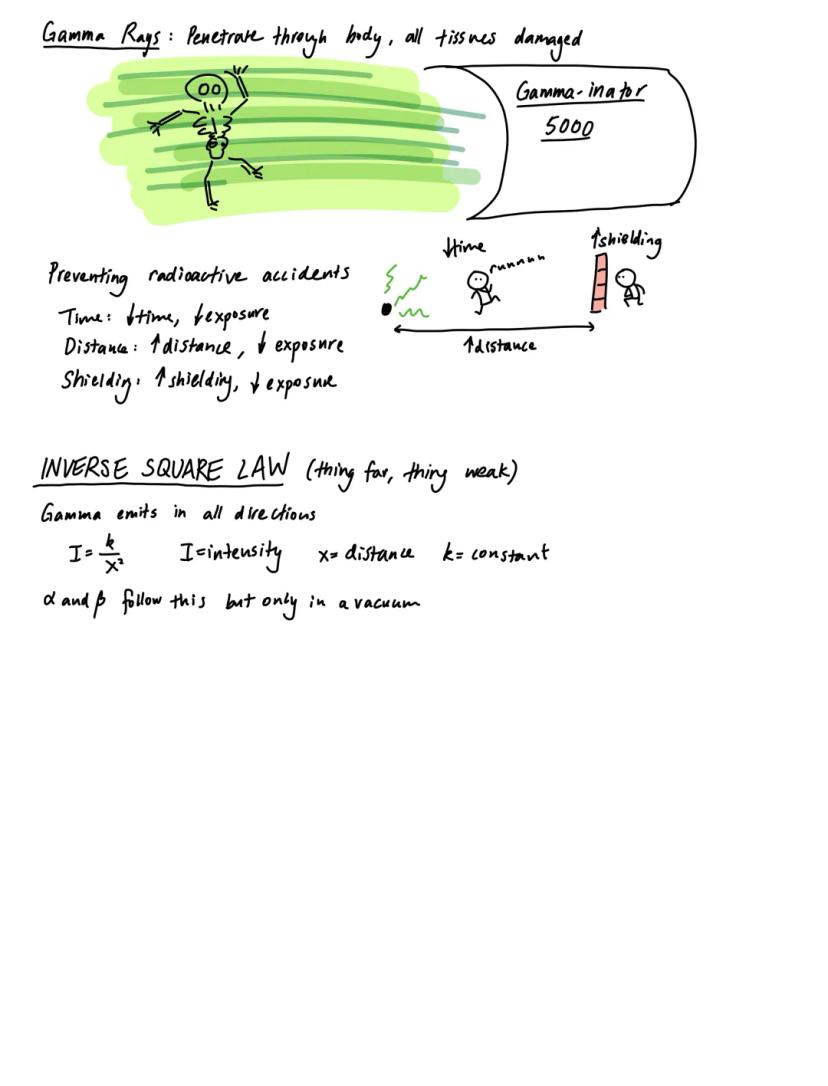 Gamma Rays: Penetrate through body, all tissues damaged
Gamma-inator
5000
↓time
runnnn
↑shielding
↑distance
Preventing radioactive accidents
Time: ↓time, ↓exposure
Distance: ↑distance, ↓ exposure
Shielding: ↑shielding, ↓exposure
INVERSE SQUARE LAW (thing far, thing weak)
Gamma emits in all directions
I = k/x² I=intensity x= distance k= constant
α and β follow this but only in a vacuum